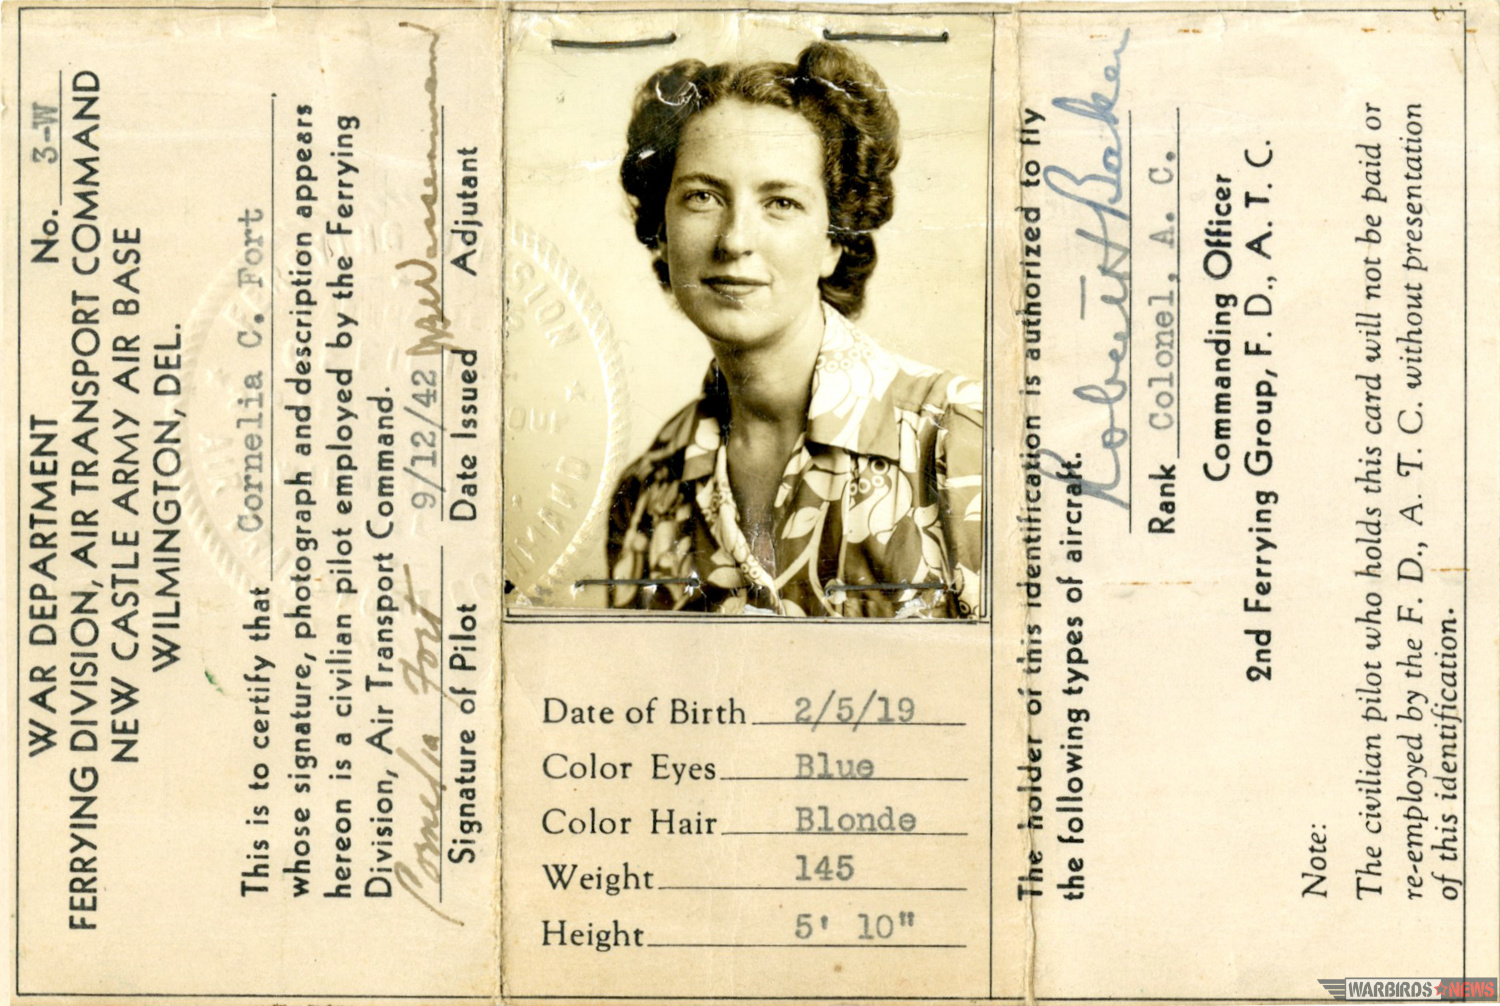 WAR DEPARTMENT No. 3-W
FERRYING DIVISION, AIR TRANSPORT COMMAND
NEW CASTLE ARMY AIR BASE
WILMINGTON, DEL.
This is to certify that Cornelia C. Fort
whose signature, photograph and description appears
hereon is a civilian pilot employed by the Ferrying
Division, Air Transport Command.
Cornelia Fort 9/12/42
Signature of Pilot Date Issued Adjutant
Date of Birth 2/5/19
Color Eyes Blue
Color Hair Blonde
Weight 145
Height 5' 10"
The holder of this identification is authorized to fly
the following types of aircraft.
Robert H Baker
Rank Colonel, A. C.
Commanding Officer
2nd Ferrying Group, F. D., A. T. C.
Note:
The civilian pilot who holds this card will not be paid or
re-employed by the F. D., A. T. C. without presentation
of this identification.
WARBIRDS NEWS